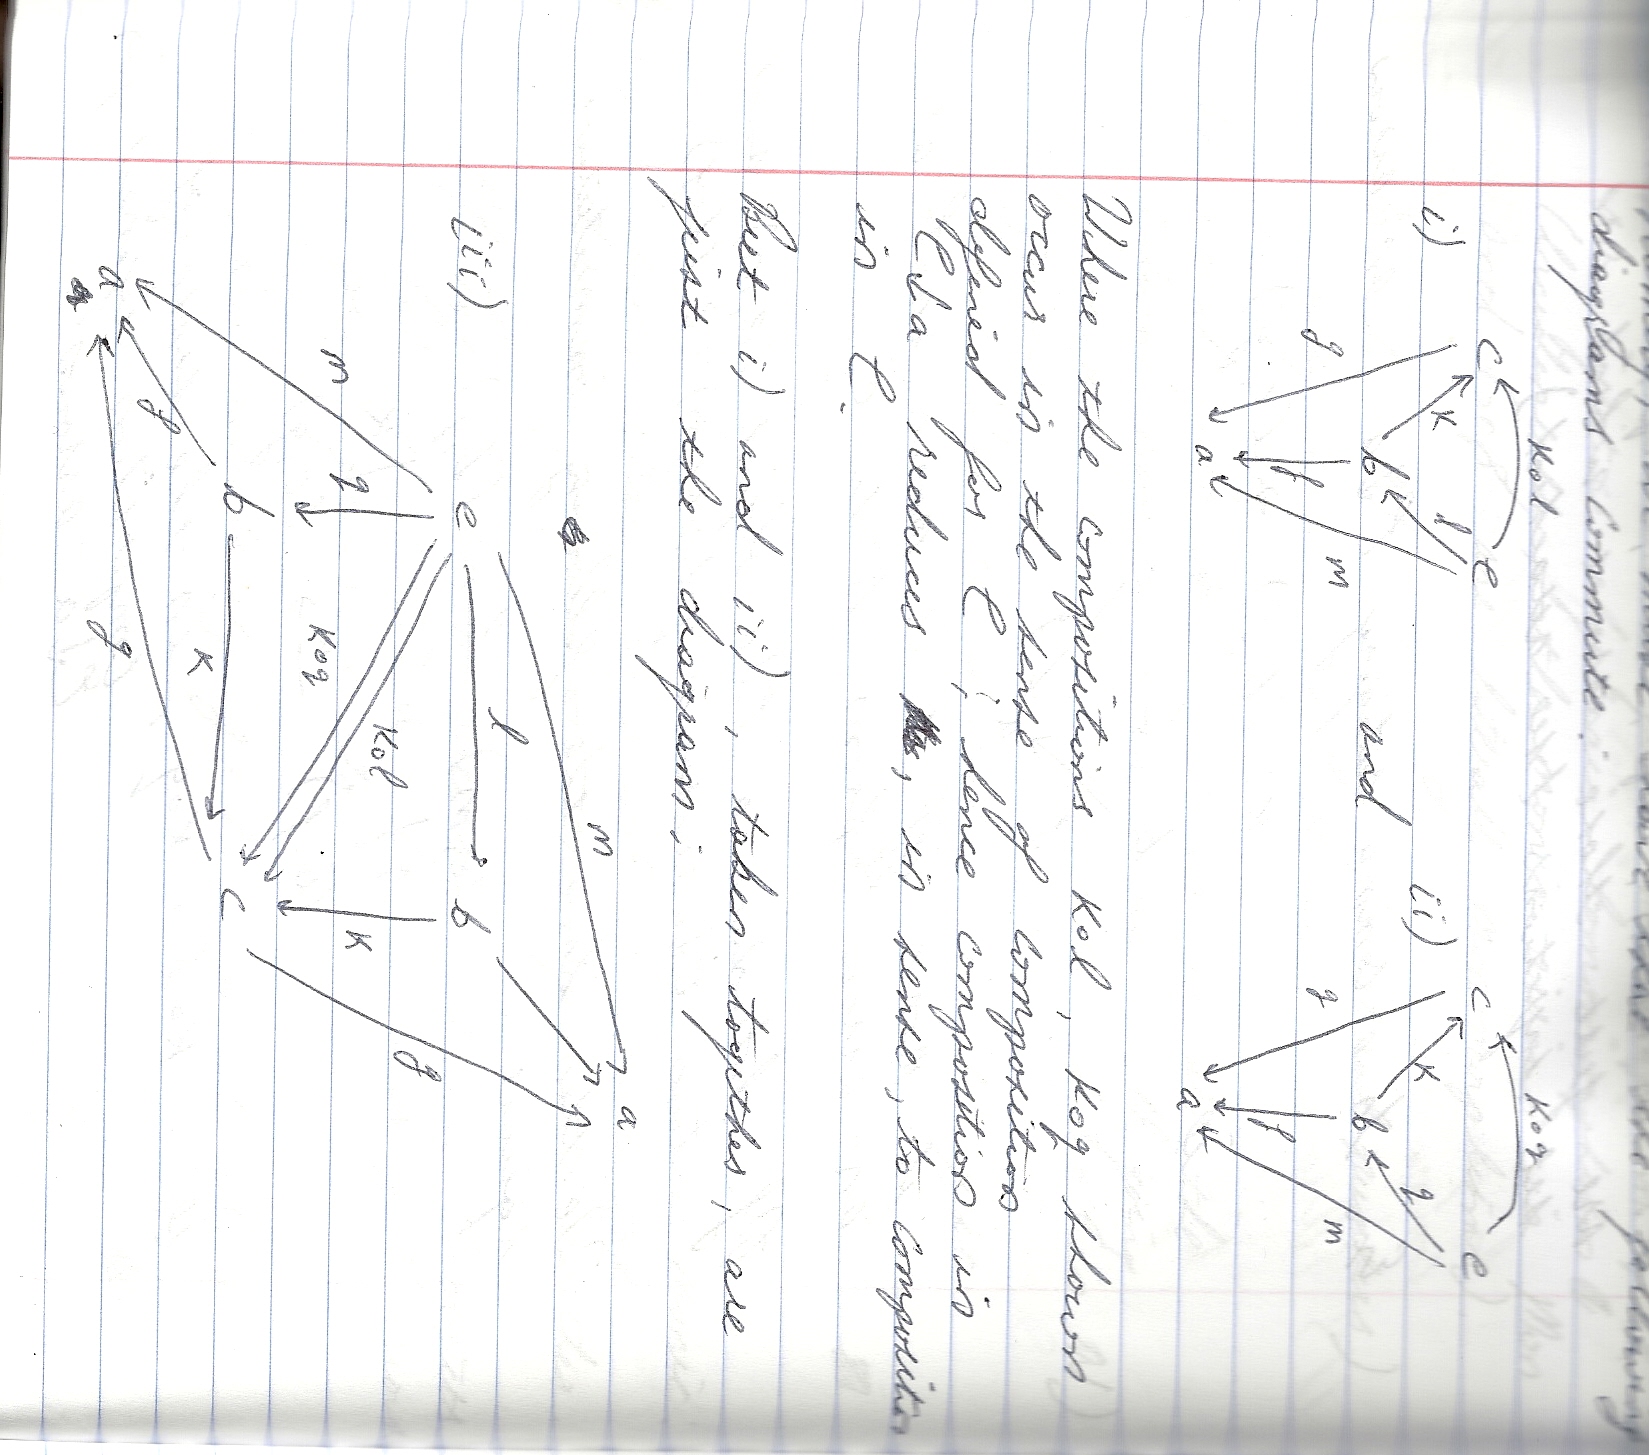 namely, we must have that the following
diagrams commute:
i)
kol
c e
k l
b
g f m
a
and
ii)
koq
c e
k q
b
g f m
a
Where the compositions kol, koq shown
occur in the sense of composition
defined for C; hence composition in
C↓a reduces , in sense, to composition
in C.
But i) and ii), taken together, are
just the diagram:
iii)
a
m
l
e b
g
kol
m q k
koq
b c
k
f
a
g